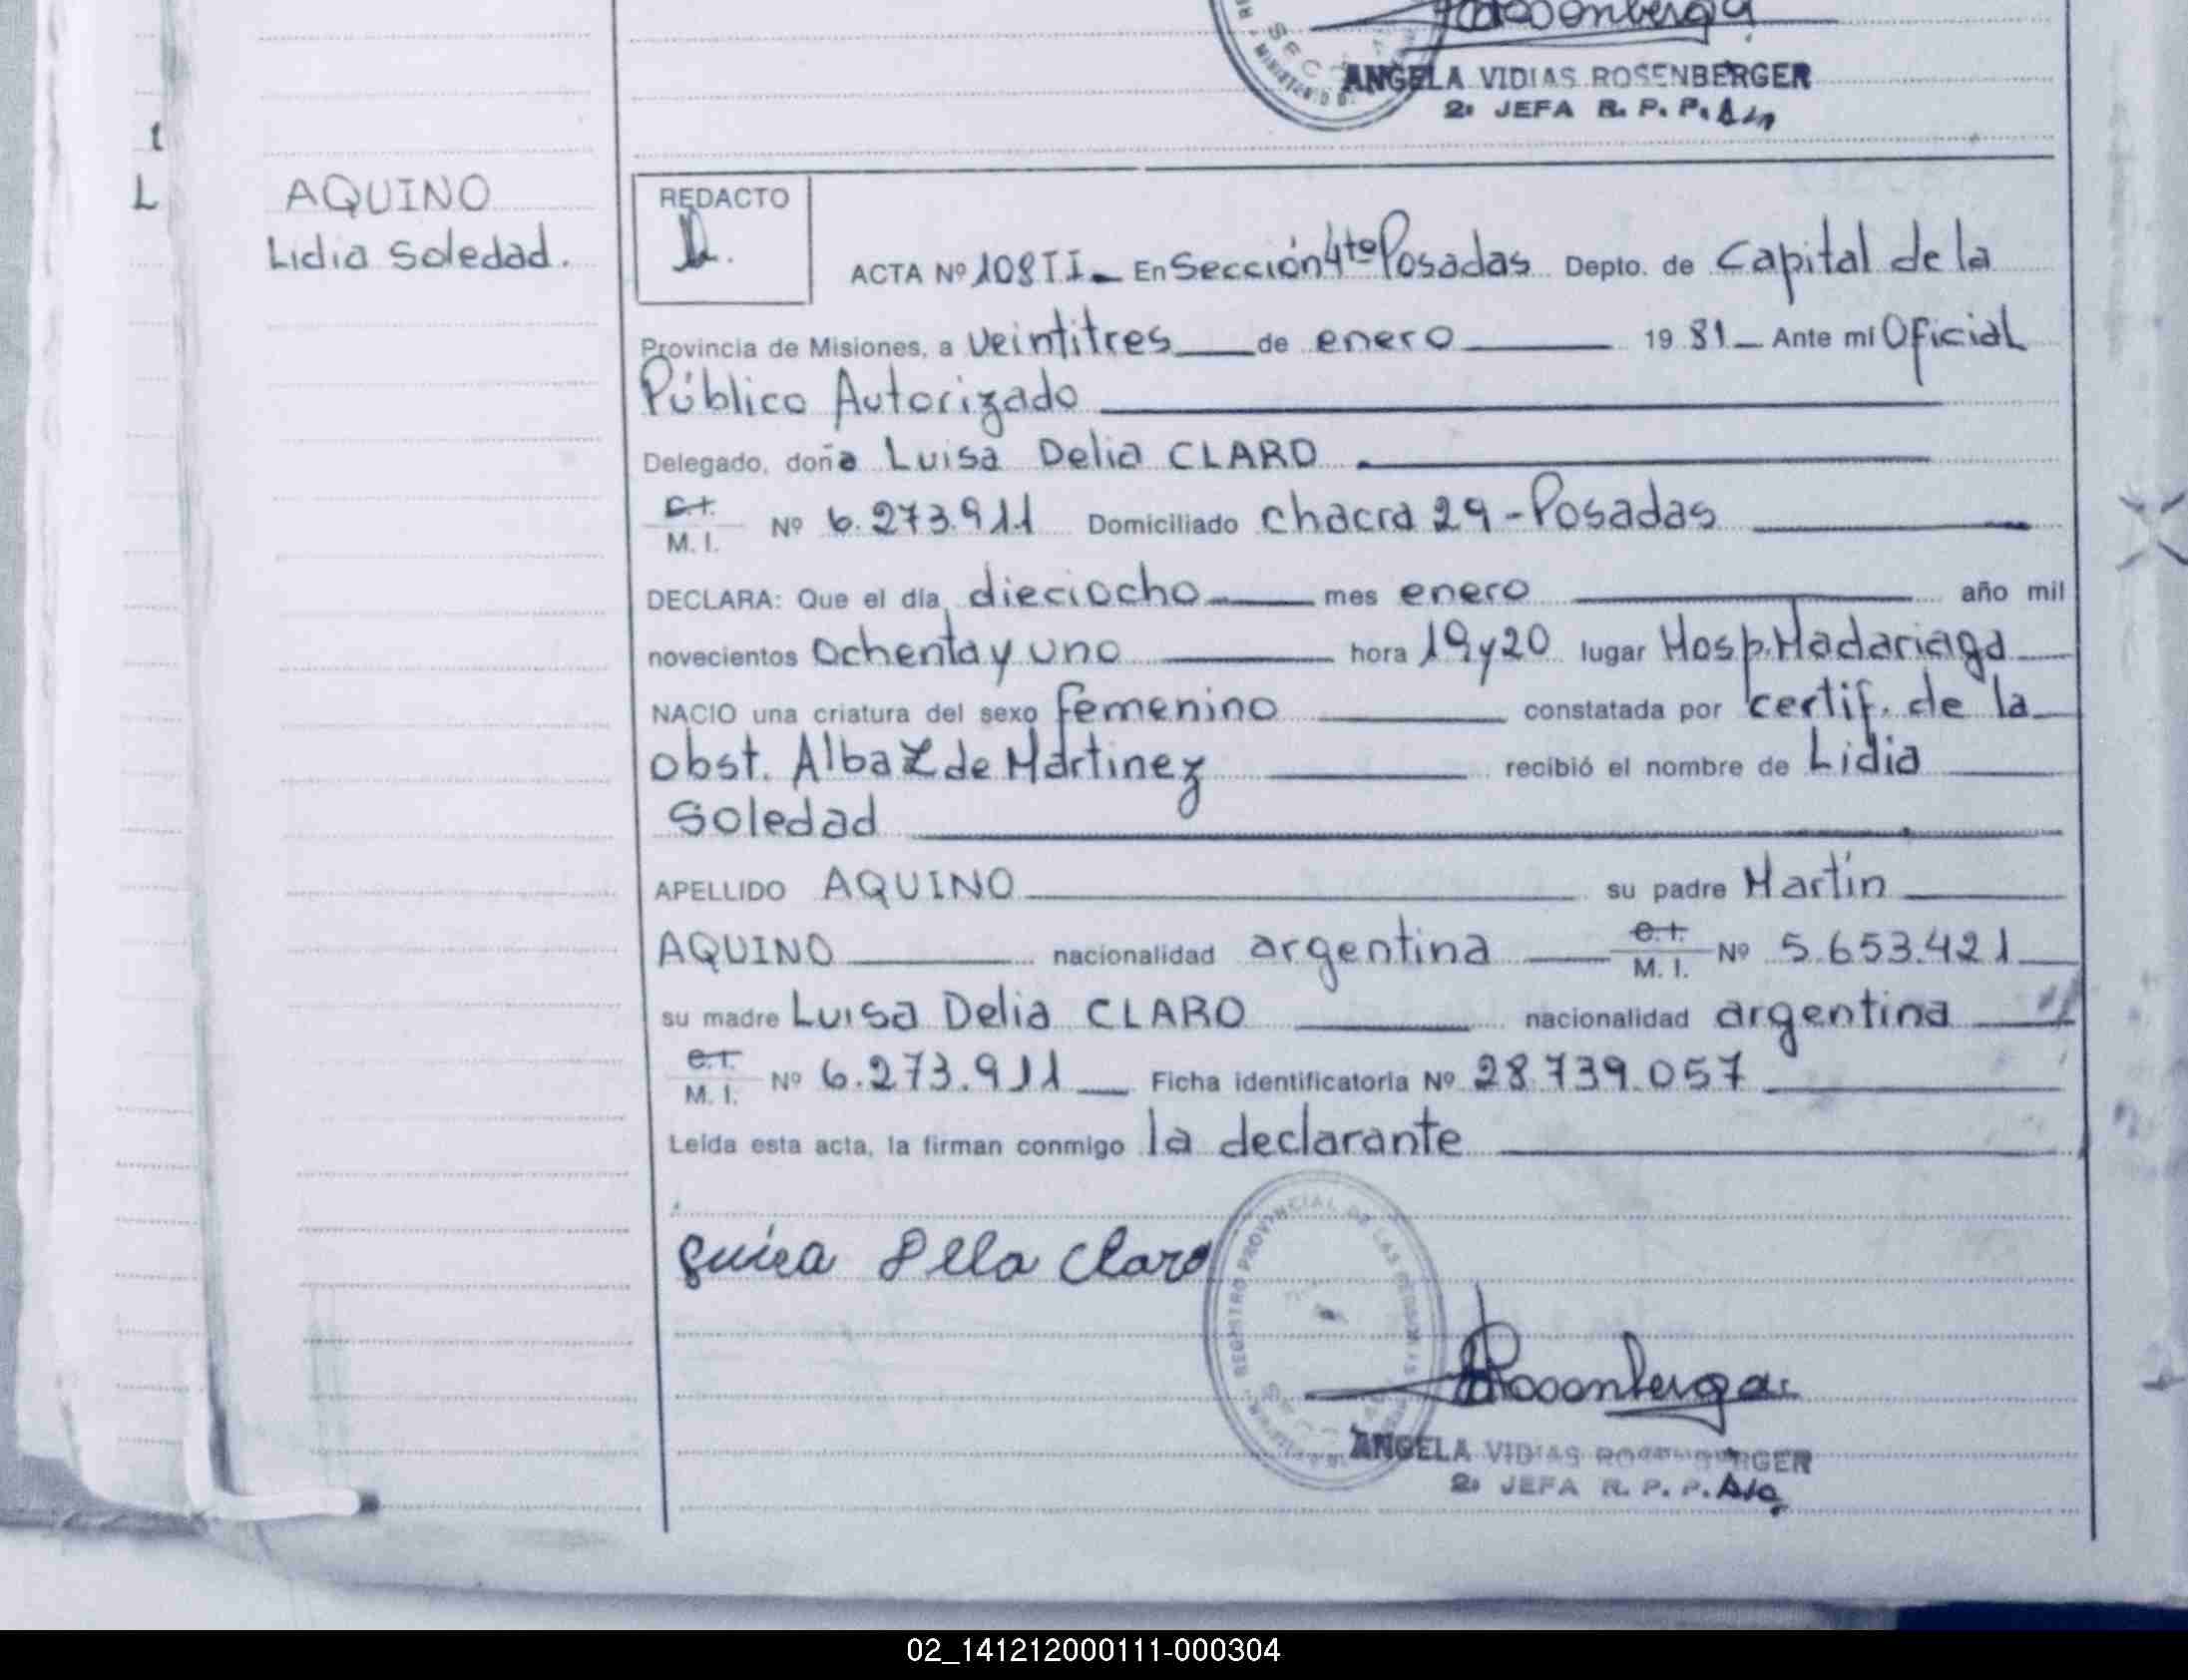 Rosenberger
ANGELA VIDIAS ROSENBERGER
2ª JEFA R. P. P.
L
AQUINO
Lidia Soledad.
REDACTO
ACTA Nº 108 II En Sección 4ta Posadas Depto. de Capital de la
Provincia de Misiones, a veintitres de enero 1981 Ante mí Oficial
Público Autorizado
Delegado, doña Luisa Delia CLARO
C.I.
M. I. Nº 6.273.911 Domiciliado chacra 29-Posadas
DECLARA: Que el día dieciocho mes enero año mil
novecientos ochenta y uno hora 19y20 lugar Hosp. Madariaga
NACIO una criatura del sexo femenino constatada por certif. de la
obst. Alba Z de Martinez recibió el nombre de Lidia
Soledad
APELLIDO AQUINO su padre Martín
AQUINO nacionalidad argentina C.I. M. I. Nº 5.653.421
su madre Luisa Delia CLARO nacionalidad argentina
C.I.
M. I. Nº 6.273.911 Ficha identificatoria Nº 28.739.057
Leída esta acta, la firman conmigo la declarante
REGISTRO PROVINCIAL DE LAS PERSONAS
Luisa Delia Claro
Rosenberger
ANGELA VIDIAS ROSENBERGER
2ª JEFA R. P. P.
02_141212000111-000304